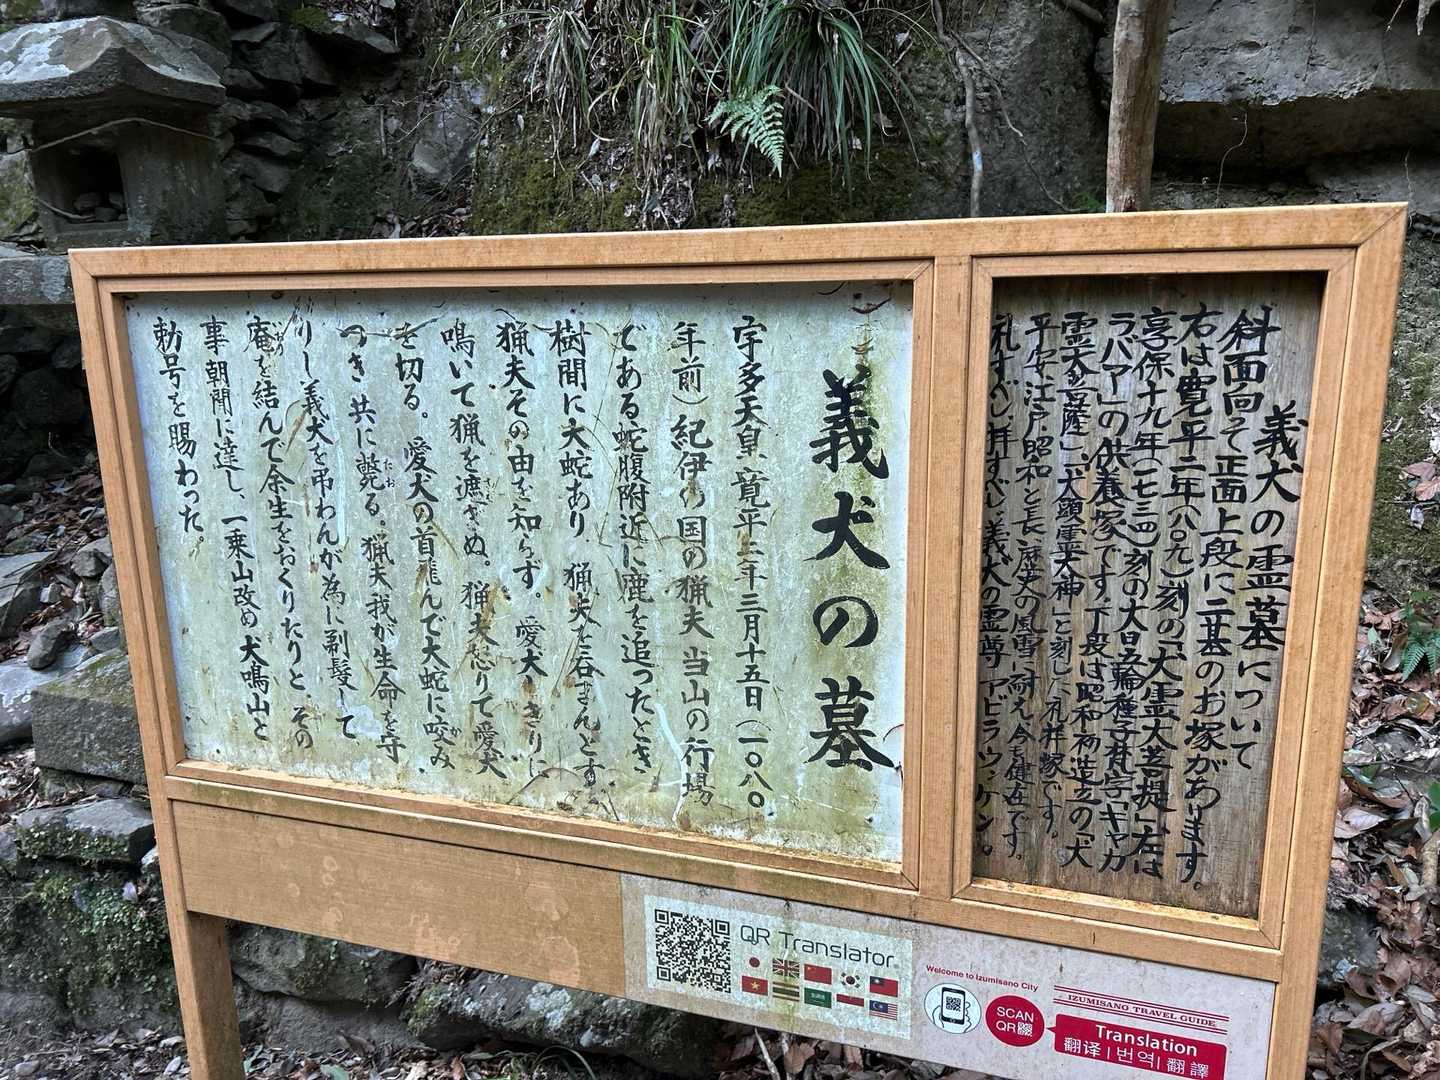 義犬の霊墓について
斜面向って正面上段に二基のお塚があります。
右は寛平二年(八〇九)刻の「犬霊大菩提」左は
享保十九年(一七三四)刻の大日五輪種子梵字「キャカ
ラバア」の供養塚です。下段は昭和初造立の「犬
霊大菩薩」、「犬頭霊大神」と刻した礼拝塚です。
平安、江戸、昭和と長い歴史の風雪に耐え今も健在です。
礼すべし拝すべし義犬の霊尊アビラウンケン。
義犬の墓
宇多天皇、寛平二年三月十五日(一〇八〇
年前)紀伊の国の猟夫、当山の行場
である蛇腹附近に鹿を追ったとき
樹間に大蛇あり、猟夫を呑まんとす
猟夫その由を知らず。愛犬、きりに
鳴いて猟を遮ぎぬ。猟夫怒りて愛犬
を切る。愛犬の首飛んで大蛇に咬み
つき共に斃る。猟夫我が生命を守
りし義犬を弔わんが為に剃髪して
庵を結んで余生をおくりたりと、その
事朝聞に達し、一乗山改め犬鳴山と
勅号を賜わった。
QR Translator
Welcome to Izumisano City
SCAN
QR
IZUMISANO TRAVEL GUIDE
Translation
翻译 | 번역 | 翻譯